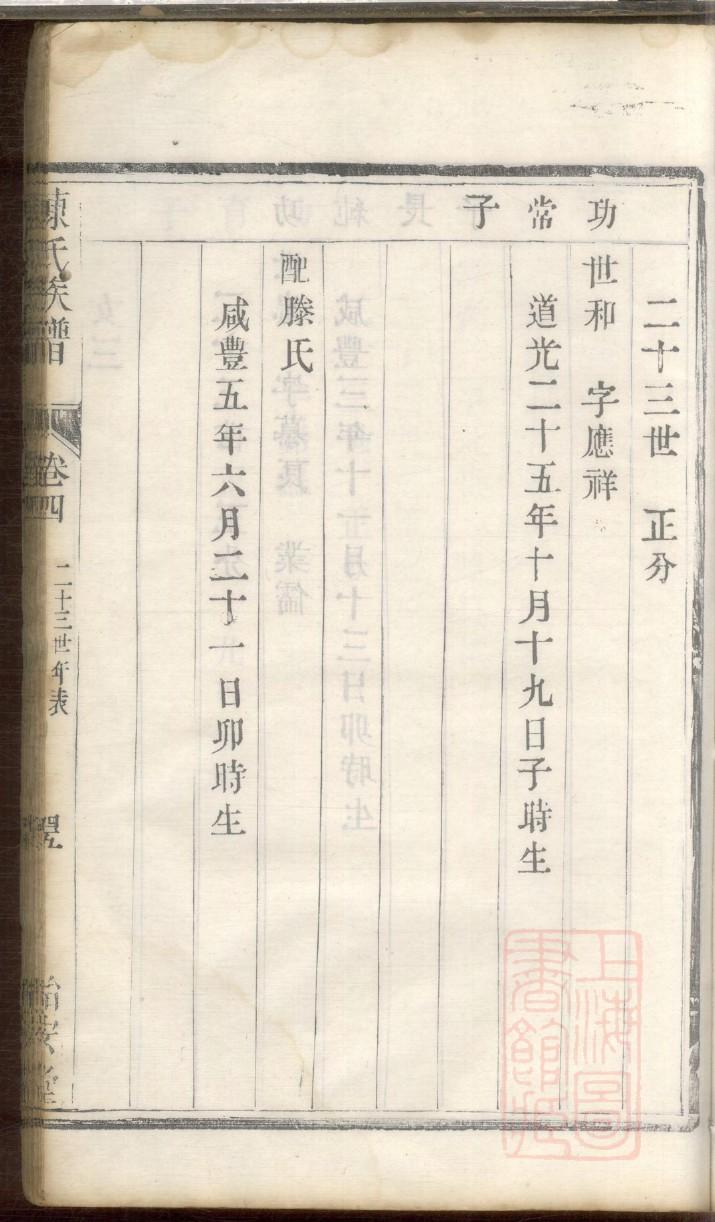 二十三世 正分
功常子
世和 字應祥
道光二十五年十月十九日子時生
配滕氏
咸豐五年六月二十一日卯時生
陳氏族譜
卷四
二十三世年表
上海圖書館藏